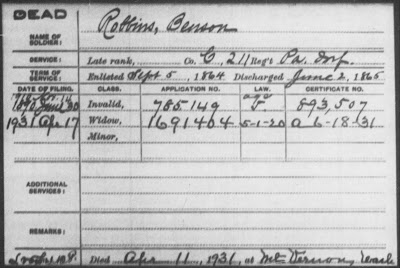 DEAD
NAME OF SOLDIER: Robbins, Benson
SERVICE: Late rank, Co. C, 211 Reg't Pa. Inf.
TERM OF SERVICE: Enlisted Sept 5, 1864 Discharged June 2, 1865
DATE OF FILING. CLASS. APPLICATION NO. LAW. CERTIFICATE NO.
1890 June 30 Invalid, 785149 893,507
1931 Apr 17 Widow, 1691404 5-1-20 a 6-18-31
Minor,
ADDITIONAL SERVICES:
REMARKS:
Died Apr 11, 1931, at Mt Vernon, Wash